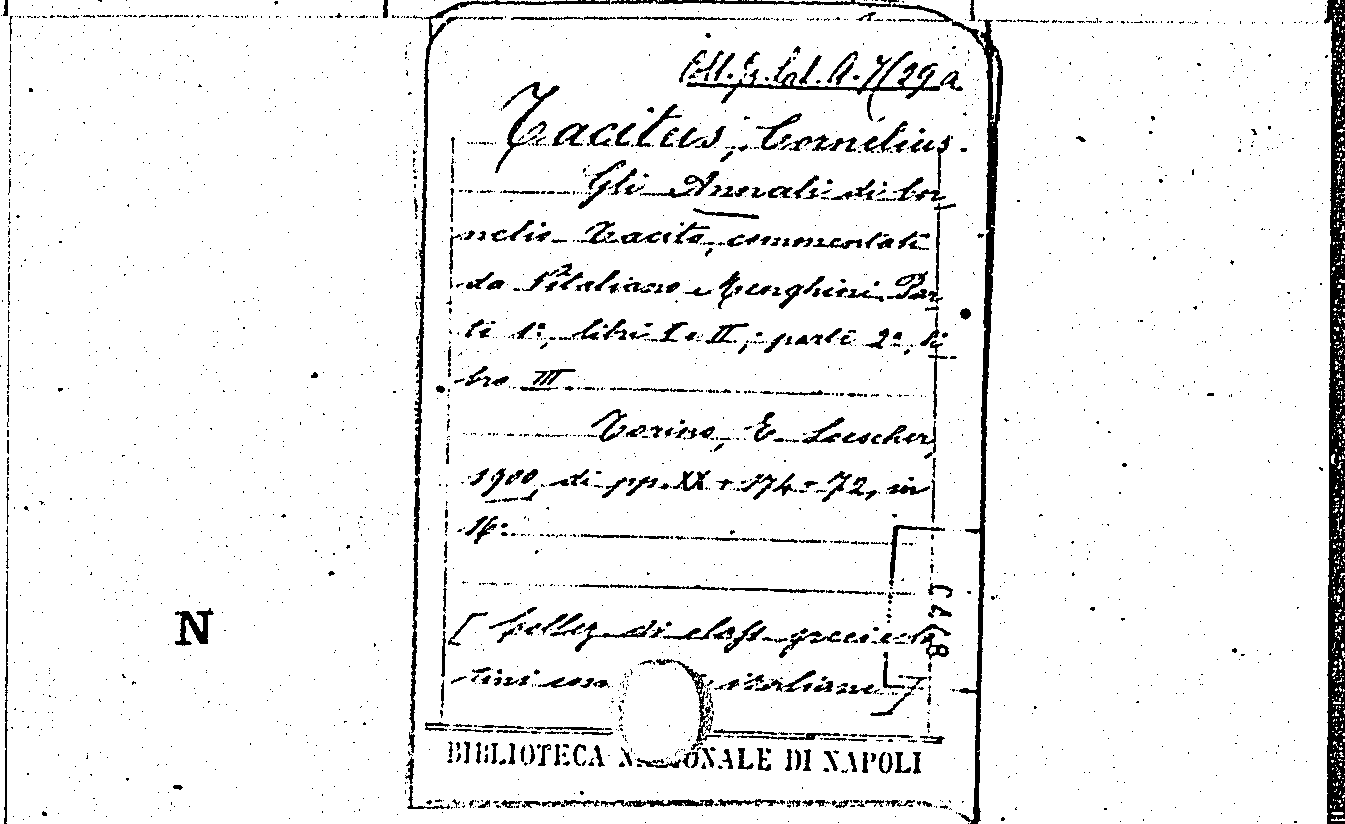 Coll. gr. lat. A. 7/29 a
Tacitus, Cornelius.
Gli Annali di Cor-
nelio Tacito, commentati
da Vitaliano Menghini. Par-
te 1ª, libri I e II; parte 2ª, li-
bro III
Torino, E. Loescher,
1900, di pp. XX + 174 + 72, in
16°.
[Collez. di class. greci e la-
tini con italiane]
N
BIBLIOTECA N ONALE DI NAPOLI